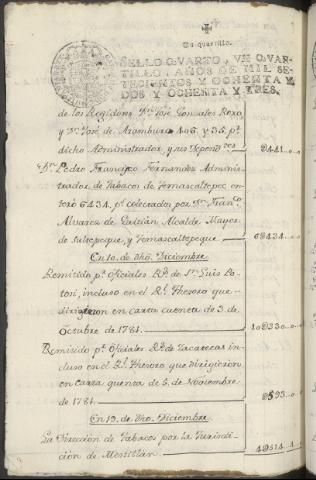 Un quartillo.
SELLO QVARTO, VN QVAR-
TILLO, AÑOS DE MIL SE-
TECIENTOS Y OCHENTA Y
DOS Y OCHENTA Y TRES.
de los Regidores Dn. José Gonzales Roxo,
y Dn. José de Aramburu 406, y 35. pr.
dicho Administrador, y sus Depend.tes
Dn. Pedro Francisco Fernandez Adminis-
trador de Tabacos de Temascaltepec en-
teró 6434. pr. colectados por Dn. Fran.co
Alvarez de Alcalde Mayor
de Sultepeque, y Temascaltepeque 6434
En 10. de dho. Diciembre
Remitido pr. Oficiales Rs. de Sn. Luis Po-
tosi, incluso en el Rl. Thesoro que
dirigieron en carta cuenta de 3. de
Octubre de 1781.
Remitido pr. Oficiales Rs. de Zacatecas in-
cluso en el Rl. Thesoro que dirigieron
en carta quenta de 5. de Noviembre
de 1781.
En 19. de dho. Diciembre
La Direccion de Tabacos por la Jurisdi-
cion de Mextitlán.